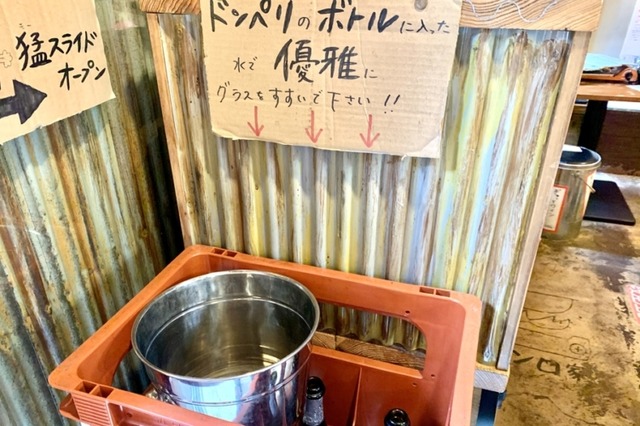 猛スライド
オープン
ドンペリのボトルに入った
水で優雅に
グラスをすすいで下さい!!